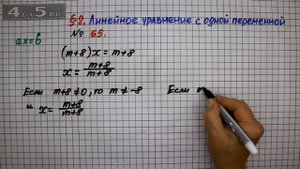 §2. Линейное уравнение с одной переменной
№ 65.
ax=b
(m+8)x = m+8
x = m+8/m+8
Если m+8≠0, то m ≠ -8
и x = m+8/m+8
Если m